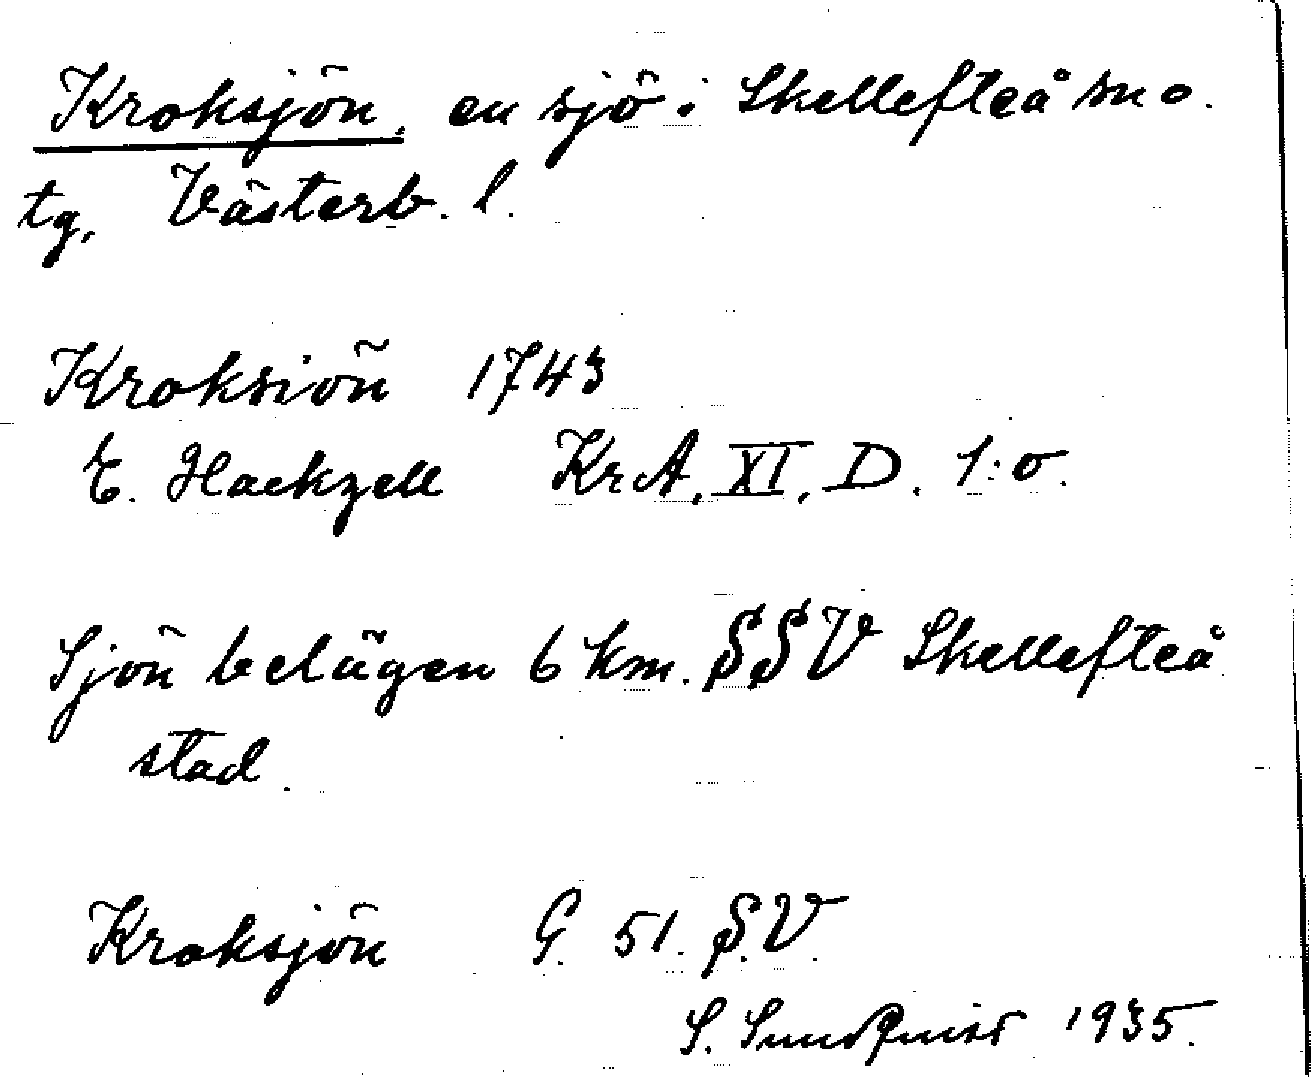 Kroksjön, en sjö i Skellefteå sn o.
tg, Västerb. l.
Kroksiön 1743
E. Hackzell KrA. XI. D. 1:o.
Sjön belägen 6 km. SSV Skellefteå
stad.
Kroksjön G. 51. S.V.
S. Sundquist 1935.